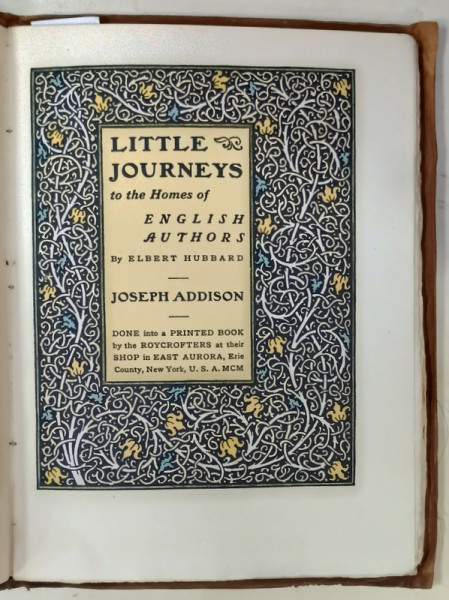 LITTLE
JOURNEYS
to the Homes of
ENGLISH
AUTHORS
By ELBERT HUBBARD
JOSEPH ADDISON
DONE into a PRINTED BOOK
by the ROYCROFTERS at their
SHOP in EAST AURORA, Erie
County, New York, U. S. A. MCM